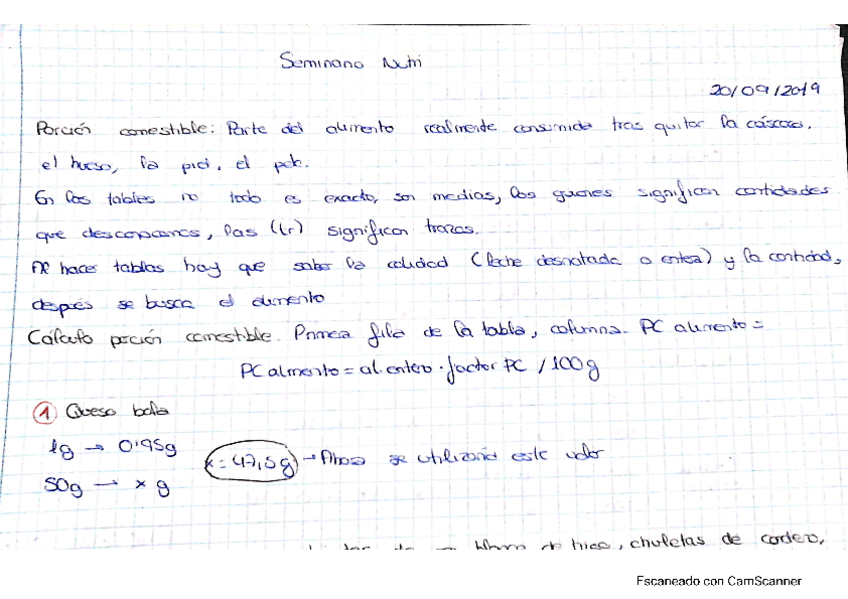 Seminario Nutri
20/09/2019
Porción comestible: Parte del alimento realmente consumida tras quitar la cáscara,
el hueso, la piel, el
En las tablas no todo es exacto, son medias, los guiones significan cantidades
que desconocemos, las (tr) significan trazas.
Al hacer tablas hay que saber la calidad (leche desnatada o entera) y la cantidad,
después se busca el alimento
Cálculo porción comestible. Primera fila de la tabla, columna. PC alimento =
PC alimento = al. entero · factor PC / 100g
1 Queso bola
1g → 0'95g
x = 47,5g → Ahora se utilizaría este valor
50g → x g
de trigo, chuletas de cordero,
Escaneado con CamScanner